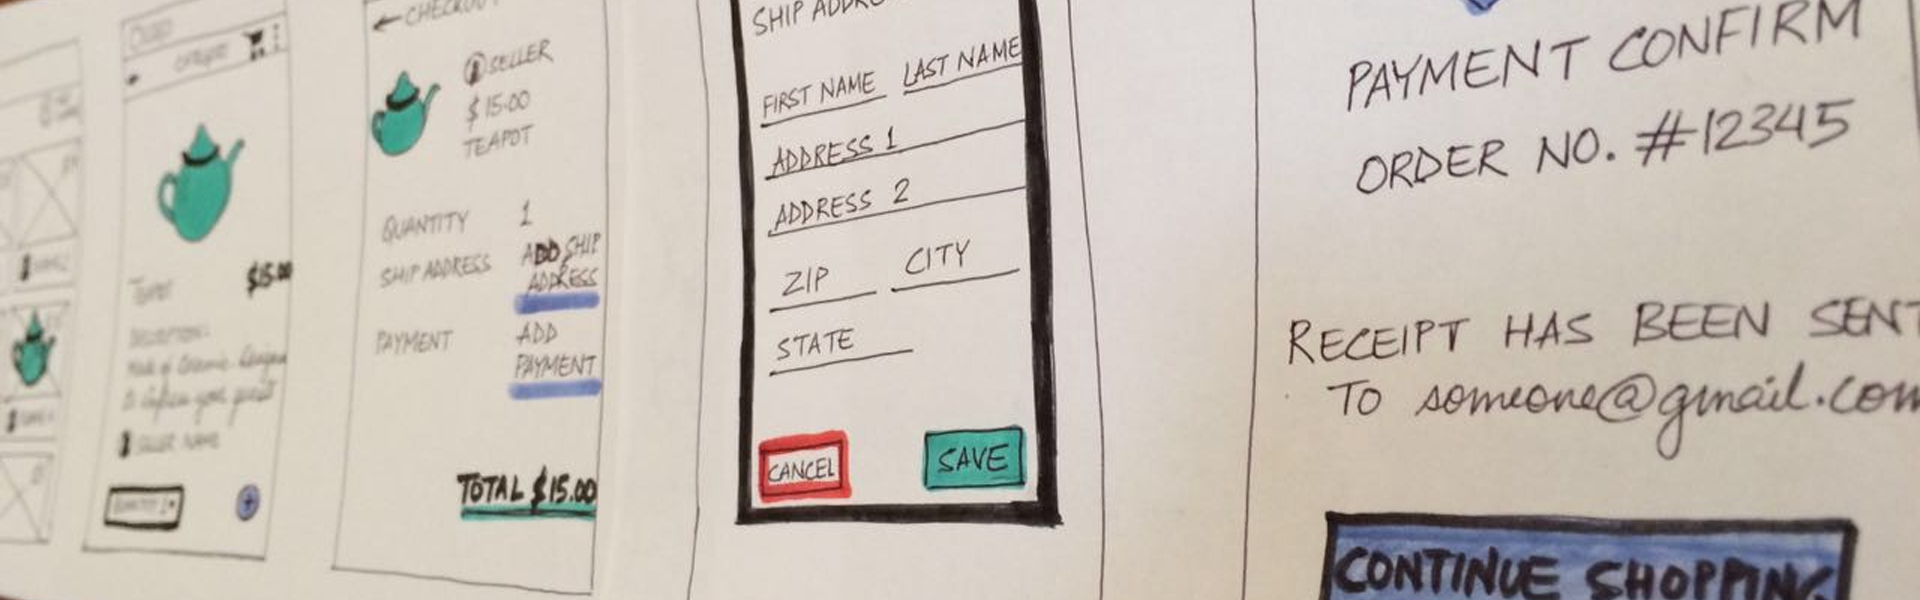 $15.00
SELLER NAME
← CHECKOUT
SELLER
$15.00
TEAPOT
QUANTITY 1
SHIP ADDRESS ADD SHIP
ADDRESS
PAYMENT ADD
PAYMENT
TOTAL $15.00
SHIP ADDRE
FIRST NAME LAST NAME
ADDRESS 1
ADDRESS 2
ZIP CITY
STATE
CANCEL SAVE
PAYMENT CONFIRM
ORDER NO. #12345
RECEIPT HAS BEEN SENT
TO someone@gmail.com
CONTINUE SHOPPING